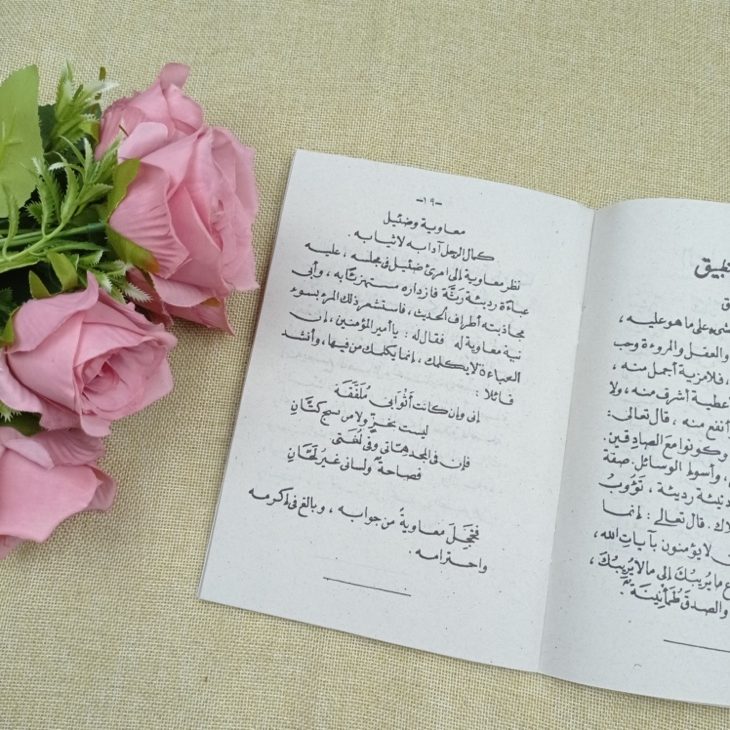 -١٩-
معاوية وضئيل
كمال الرجل آدابه لا ثيابه.
نظر معاوية إلى امرئ ضئيل فى مجلسه ، عليه
عباءة رديئة رثّة فازدراه مستهزئا به ، وأبى
مجاذبته أطراف الحديث، فاستشعر ذلك المرء بسوء
نية معاوية له فقال له : يا أمير المؤمنين ، إن
العباءة لا يكلمك ، إنما يكلمك من فيها ، وأنشد
قائلا :
إنى وإن كانت أثوابى مُلَفَّقَة
ليست بخزّ ولا من نسج كتّانِ
فإن فى المجد هِمّاتى وفى لُغَتى
فصاحة ولسانى غير لَحّانِ
فَخَجِلَ معاويةُ من جوابه ، وبالغ فى إكرامه
واحترامه .
ـطبيق
ق
ـشيء على ما هو عليه ،
والعقل والمروءة وحب
، فلا مزية أجمل منه ،
عطية أشرف منه ، ولا
أنفع منه ، قال تعالى:
وكونوا مع الصادقين.
، وأسوء الوسائل. صفة
دنيئة رديئة ، تَؤُوبُ
ـلاك. قال تعالى : إنما
لا يؤمنون بآيات الله ،
ع ما يُرِيبُكَ إلى ما لا يُرِيبُكَ ،
والصدق طُمَأْنِينَة .